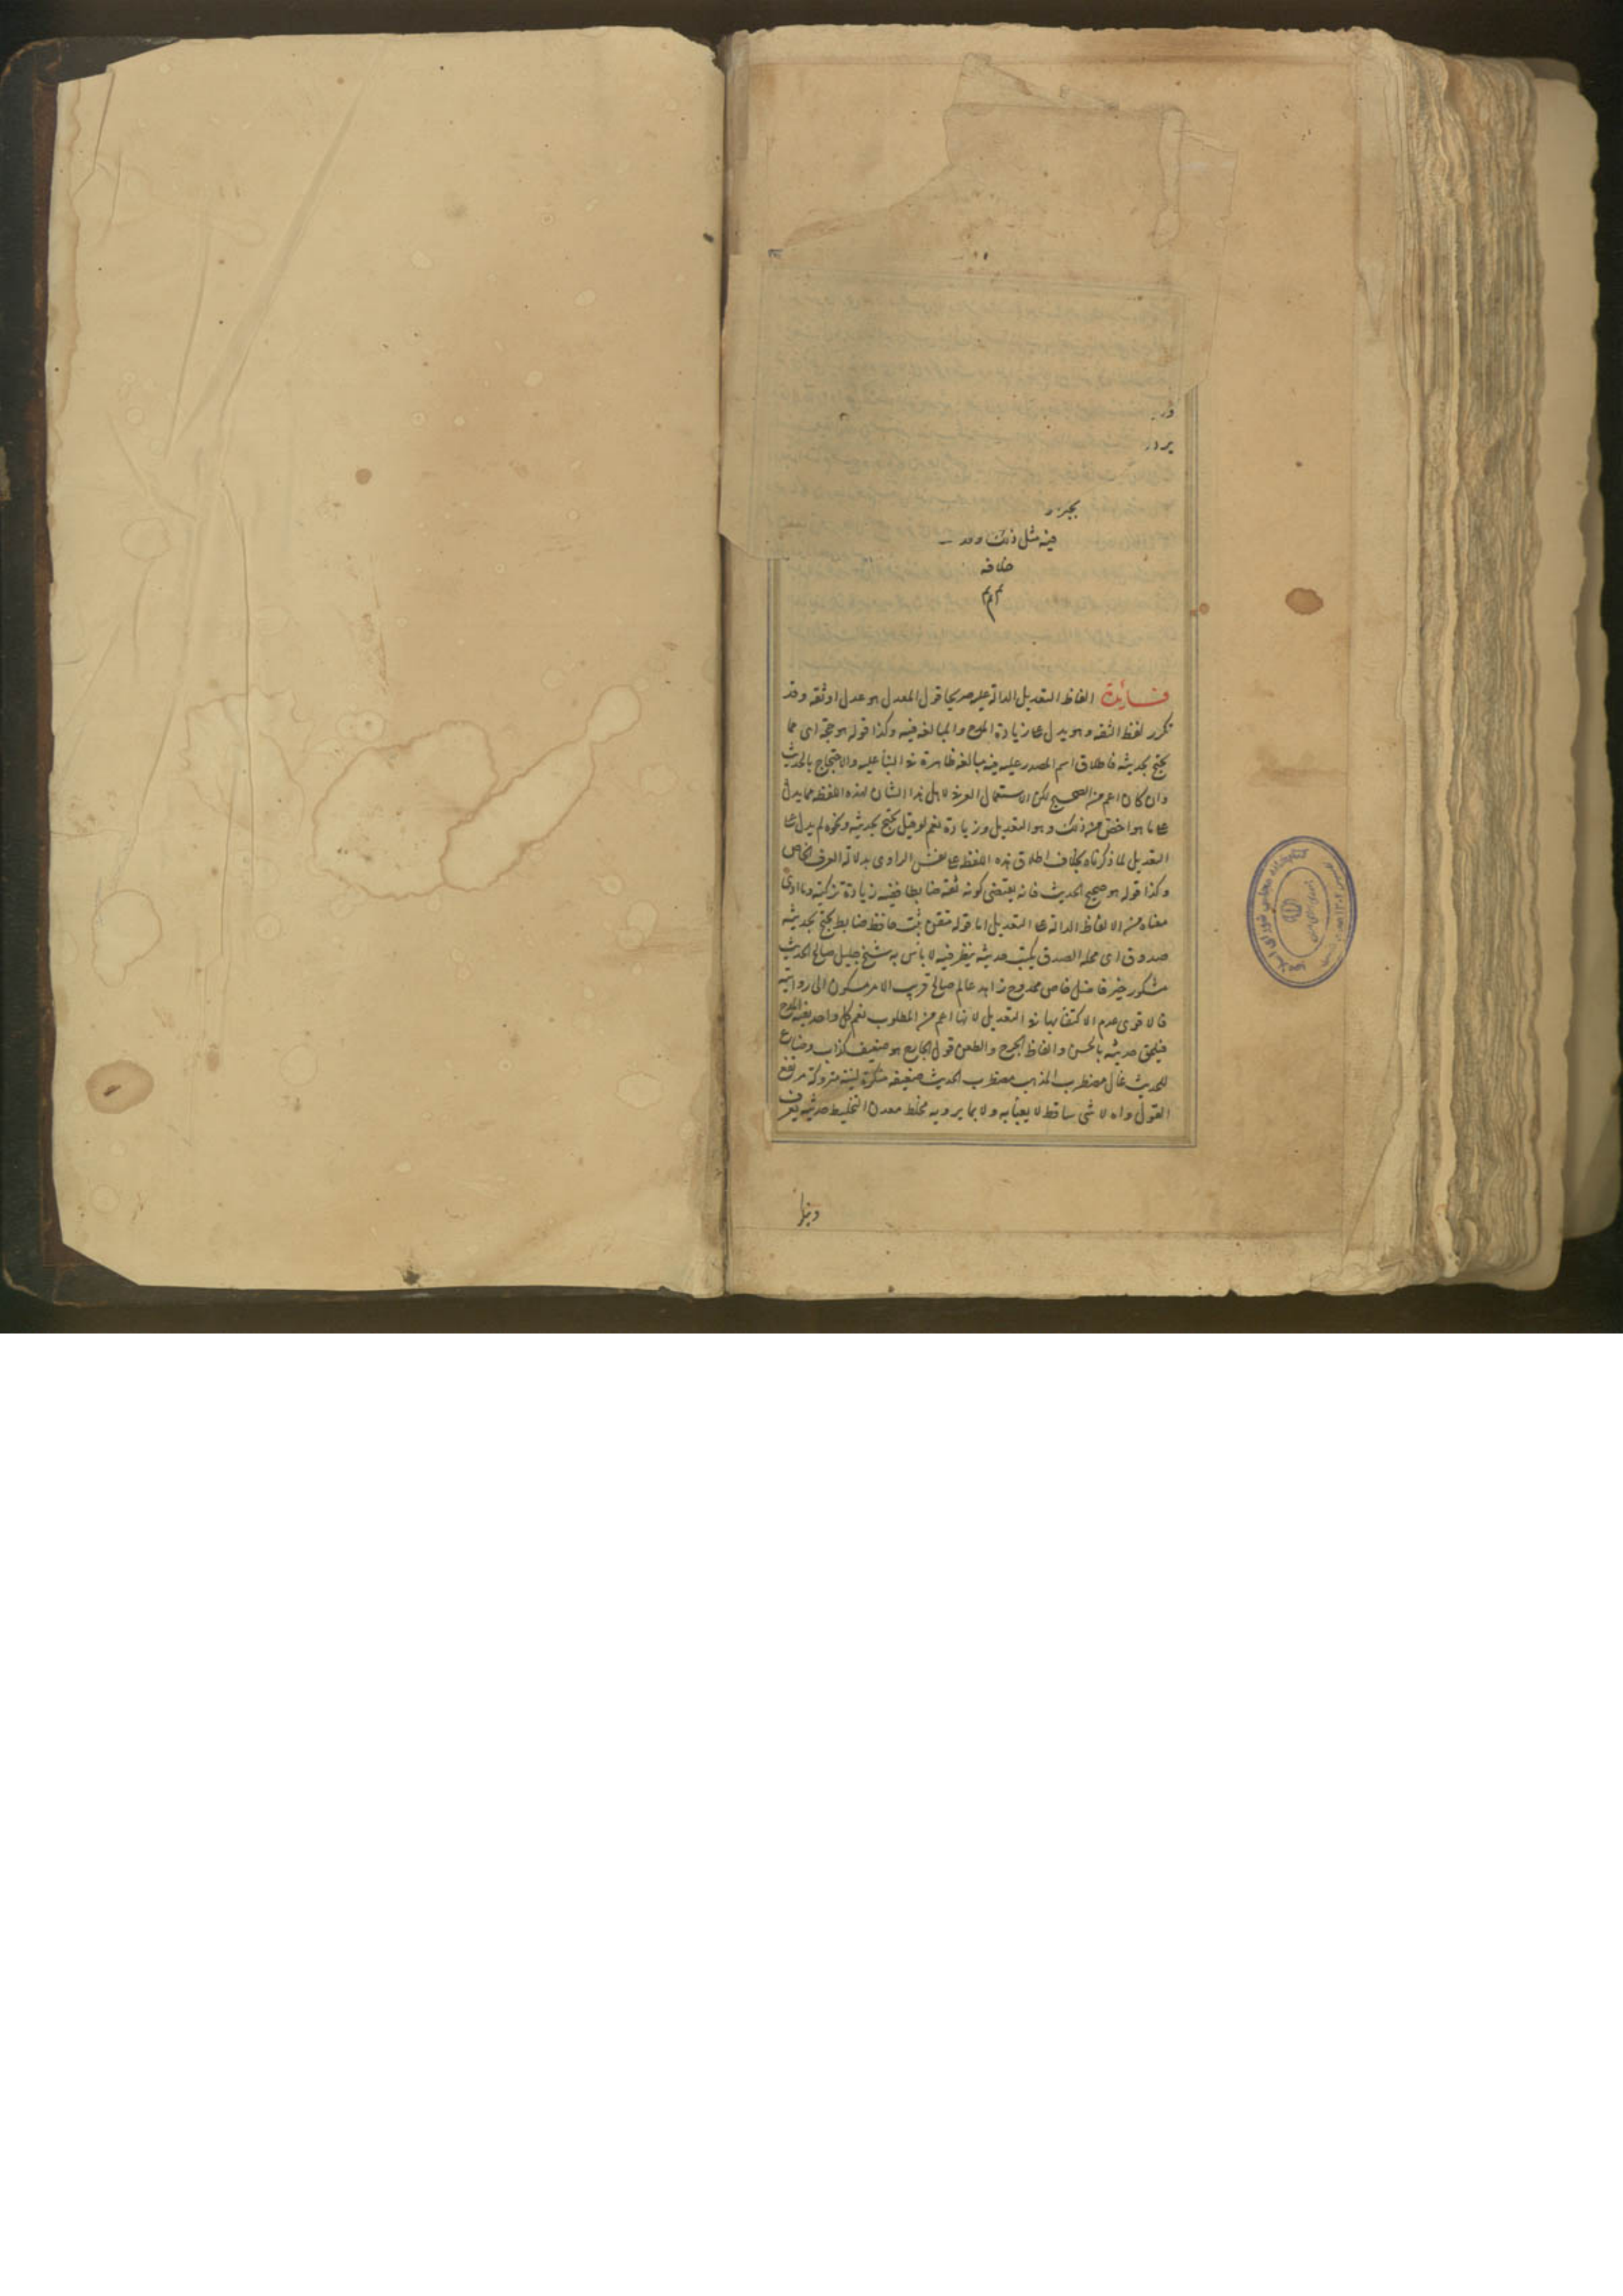 یجر
فیه مثل ذلک وقد
خلافه
م م م
فائدة الفاظ التعدیل الدالة علیه صریحا قول المعدل هو عدل او ثقة وقد
تکرر لفظ الثقه وهو یدل علی زیادة المدح والمبالغه فیه وکذا قوله هو حجة ای مما
یحتج بحدیثه فاطلاق اسم المصدر علیه فیه مبالغه ظاهرة فی الثنا علیه والاحتجاج بالحدیث
وان کان اعم من الصحیح لکن الاستعمال العرفی لاهل هذا الشان لهذه اللفظه مما یدل
علی ما هو اخص من ذلک وهو التعدیل وزیادة نعم لو قیل یحتج بحدیثه ونحوه لم یدل علی
التعدیل لما ذکرناه بخلاف اطلاق هذه اللفظ علی نفس الراوی بدلالة العرف الخاص
وکذا قوله هو صحیح الحدیث فانه یقتضی کونه ثقة ضابطا ففیه زیادة تزکیة وما ادی
معناه من الالفاظ الدالة علی التعدیل اما قوله متقن ثبت حافظ ضابط یحتج بحدیثه
صدوق ای محله الصدق یکتب حدیثه ینظر فیه لا باس به شیخ جلیل صالح الحدیث
مشکور خیر فاضل خاص ممدوح زاهد عالم صالح قریب الامر مسکون الی روایته
فالاقوی عدم الاکتفا بها فی التعدیل لانها اعم من المطلوب نعم کل واحد یفید المدح
فیلحق حدیثه بالحسن والفاظ الجرح والطعن قول الجارح هو ضعیف کذاب وضاع
للحدیث غال مضطرب المذهب مضطرب الحدیث ضعیفه منکرة لینه متروکة مرتفع
القول واه لا شی ساقط لا یعبأ به ولا بما یرویه مخلط معدن التخلیط حدیثه یعرف
وینکر
کتابخانه مجلس شورای اسلامی